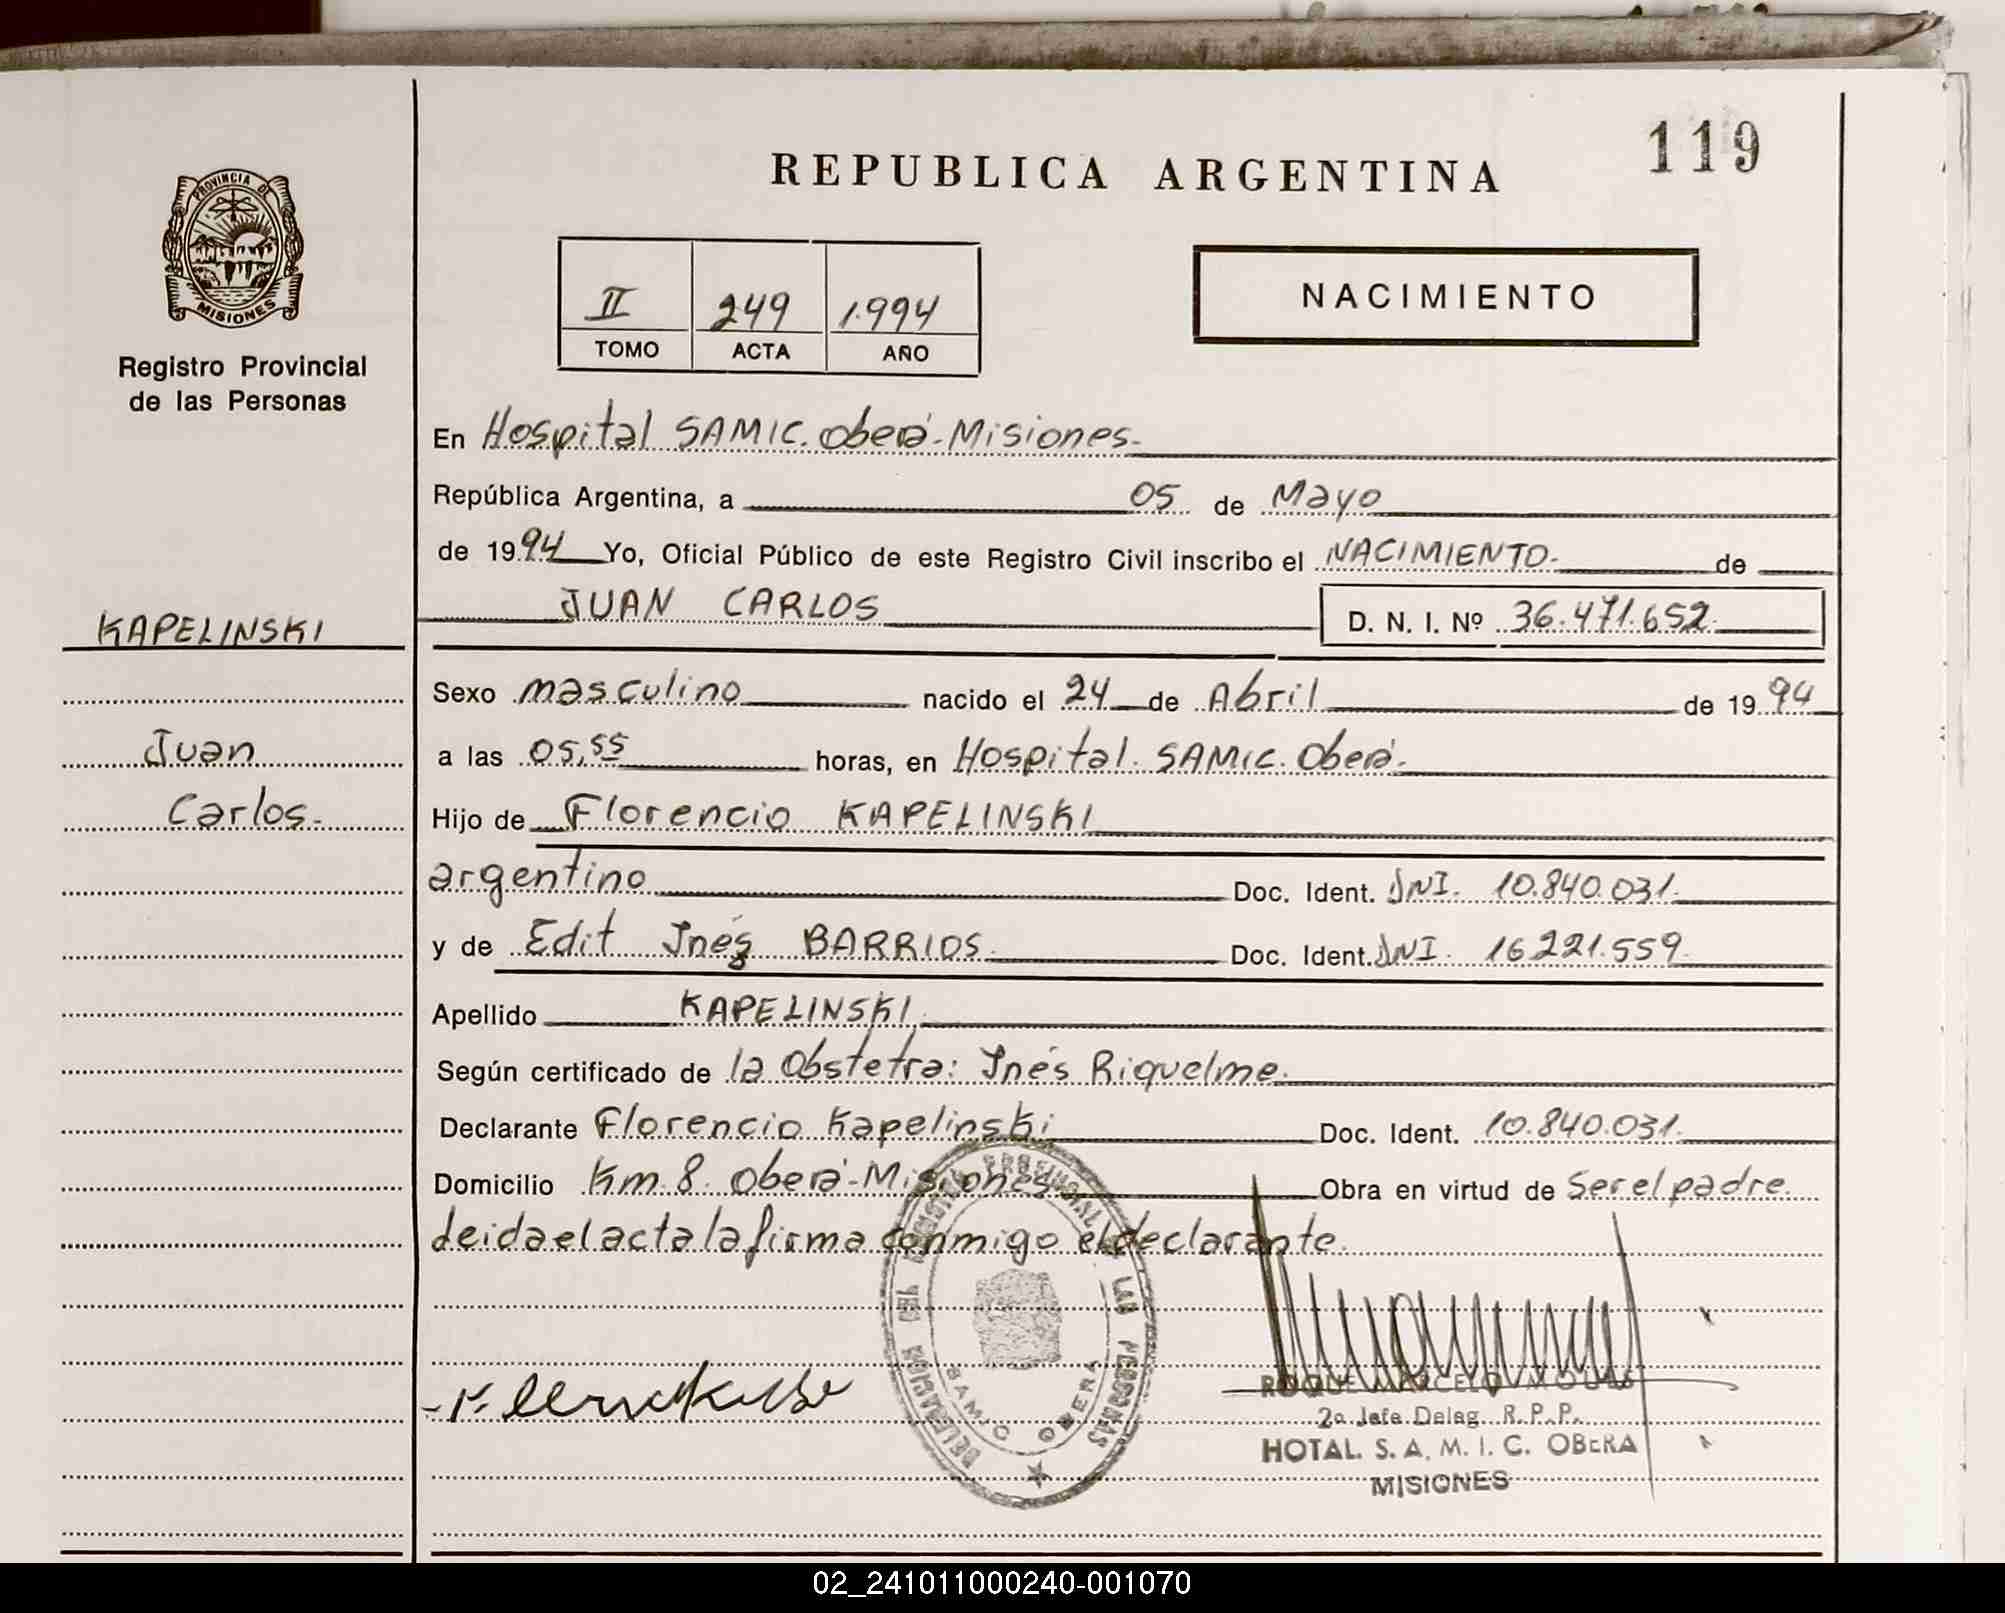 119
REPUBLICA ARGENTINA
PROVINCIA DE
MISIONES
Registro Provincial
de las Personas
II 249 1.994
TOMO ACTA AÑO
NACIMIENTO
En Hospital SAMIC. Oberá-Misiones.
República Argentina, a 05 de Mayo
de 1994 Yo, Oficial Público de este Registro Civil inscribo el NACIMIENTO. de
JUAN CARLOS D. N. I. Nº 36.471.652.
KAPELINSKI
Juan
Carlos.
Sexo masculino nacido el 24 de Abril de 1994
a las 05,55 horas, en Hospital. SAMIC. Oberá.
Hijo de Florencio KAPELINSKI
argentino Doc. Ident. DNI. 10.840.031.
y de Edit Inés BARRIOS. Doc. Ident. DNI. 16.221.559.
Apellido KAPELINSKI.
Según certificado de la Obstetra: Inés Riquelme.
Declarante Florencio Kapelinski Doc. Ident. 10.840.031.
Domicilio Km. 8. Oberá-Misiones Obra en virtud de Ser el padre.
Leida el acta la firma conmigo el declarante.
DELEGACION DEL REGISTRO PROVINCIAL DE LAS PERSONAS
SAMIC OBERA
ROQUE MARCELO
2o Jefe Deleg. R.P.P.
HOTAL. S. A. M. I. C. OBERA
MISIONES
02_241011000240-001070